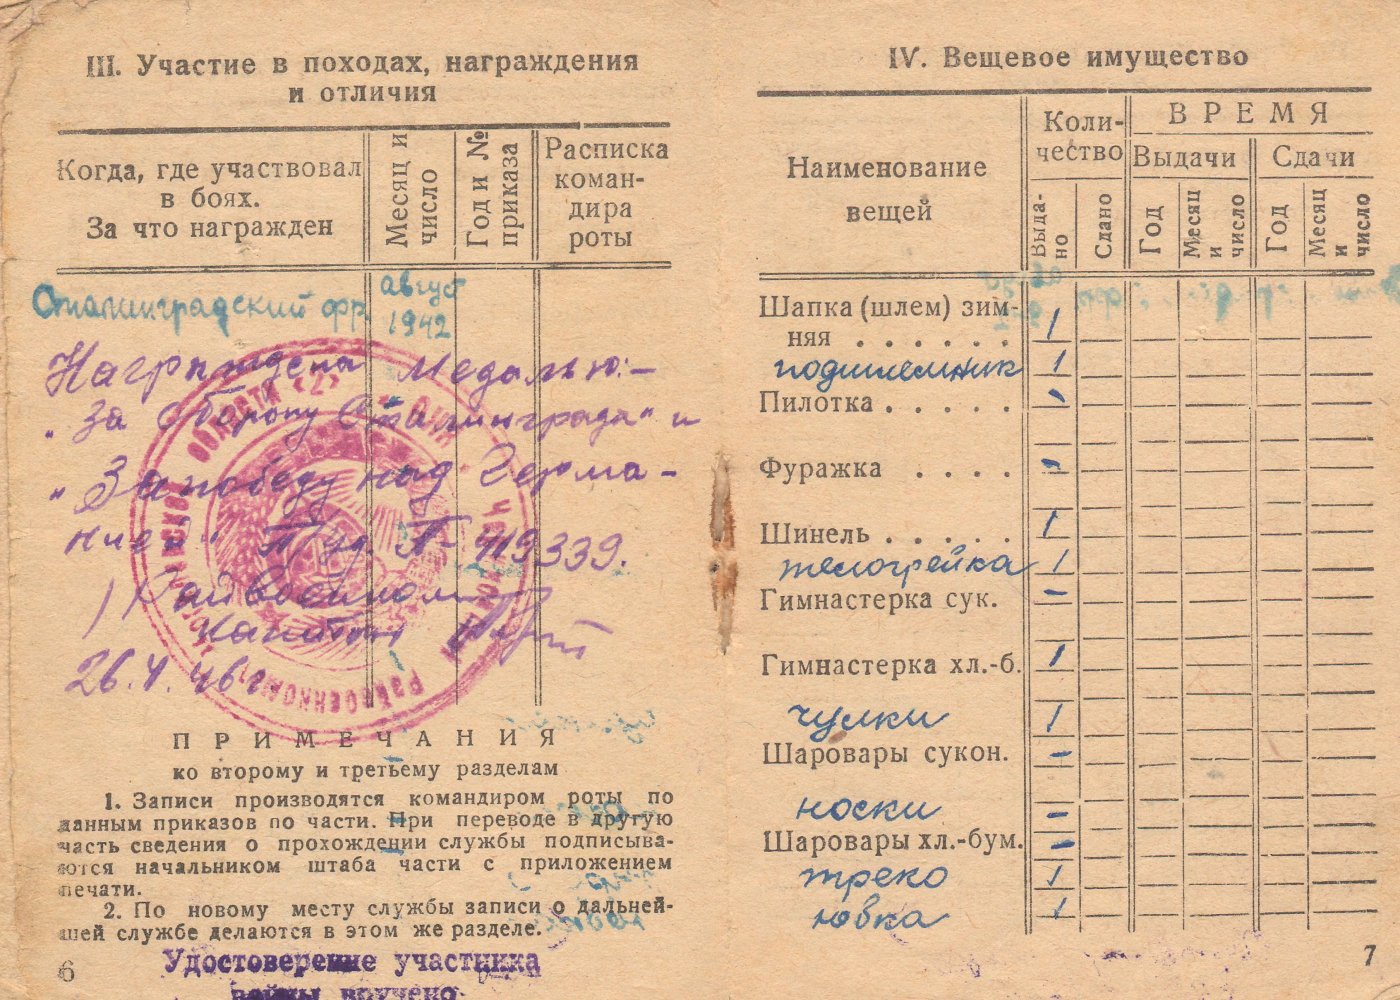 III. Участие в походах, награждения
и отличия
Когда, где участвовал
в боях.
За что награжден
Месяц и
число
Год и №
приказа
Расписка
коман-
дира
роты
Сталинградский фр.
август
1942
Награждена Медалью:-
"За Оборону Сталинграда" и
"За победу над Герма-
нией"
419339.
Райвоенком
капитан
ПРИМЕЧАНИЯ
ко второму и третьему разделам
1. Записи производятся командиром роты по
данным приказов по части. При переводе в другую
часть сведения о прохождении службы подписыва-
ются начальником штаба части с приложением
печати.
2. По новому месту службы записи о дальней-
шей службе делаются в этом же разделе.
6
Удостоверение участника
войны вручено.
IV. Вещевое имущество
Наименование
вещей
Коли-
чество
ВРЕМЯ
Выдачи
Сдачи
Выда-
но
Сдано
Год
Месяц
и
число
Год
Месяц
и
число
Шапка (шлем) зим-
няя . . . . . . 1
подшлемник 1
Пилотка . . . . . -
Фуражка . . . . -
Шинель . . . . . 1
телогрейка 1
Гимнастерка сук. -
Гимнастерка хл.-б. 1
чулки 1
Шаровары сукон. -
носки -
Шаровары хл.-бум. -
треко 1
юбка 1
7